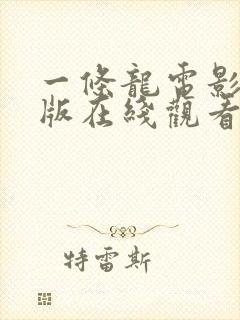 一條龍電影
版在綫觀看
特雷斯